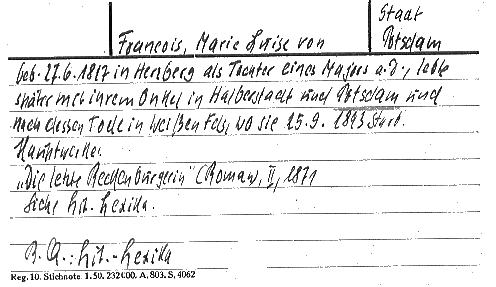 Francois, Marie Luise von
Staat
Potsdam
geb. 27.6.1817 in Herzberg als Tochter eines Majors a.D., lebte
später mit ihrem Onkel in Halberstadt und Potsdam und
nach dessen Tode in Weißenfels, wo sie 25.9.1893 starb.
Hauptwerke:
„Die letzte Reckenburgerin" (Roman), II, 1871
Siehe Lit. Lexika.
B. A.: Lit.-Lexika
Reg. 10. Stichnote. 1. 50. 232000. A. 803. S. 4062